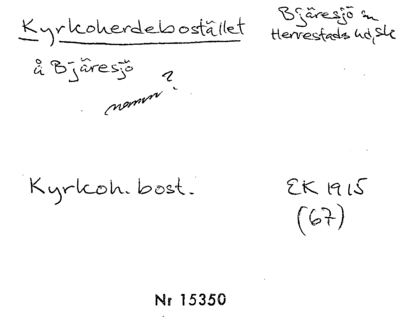 Kyrkoherdebostället
Bjäresjö sn
Herrestads hd, Sk
å Bjäresjö
namn?
Kyrkoh. bost.
EK 1915
(67)
Nr 15350